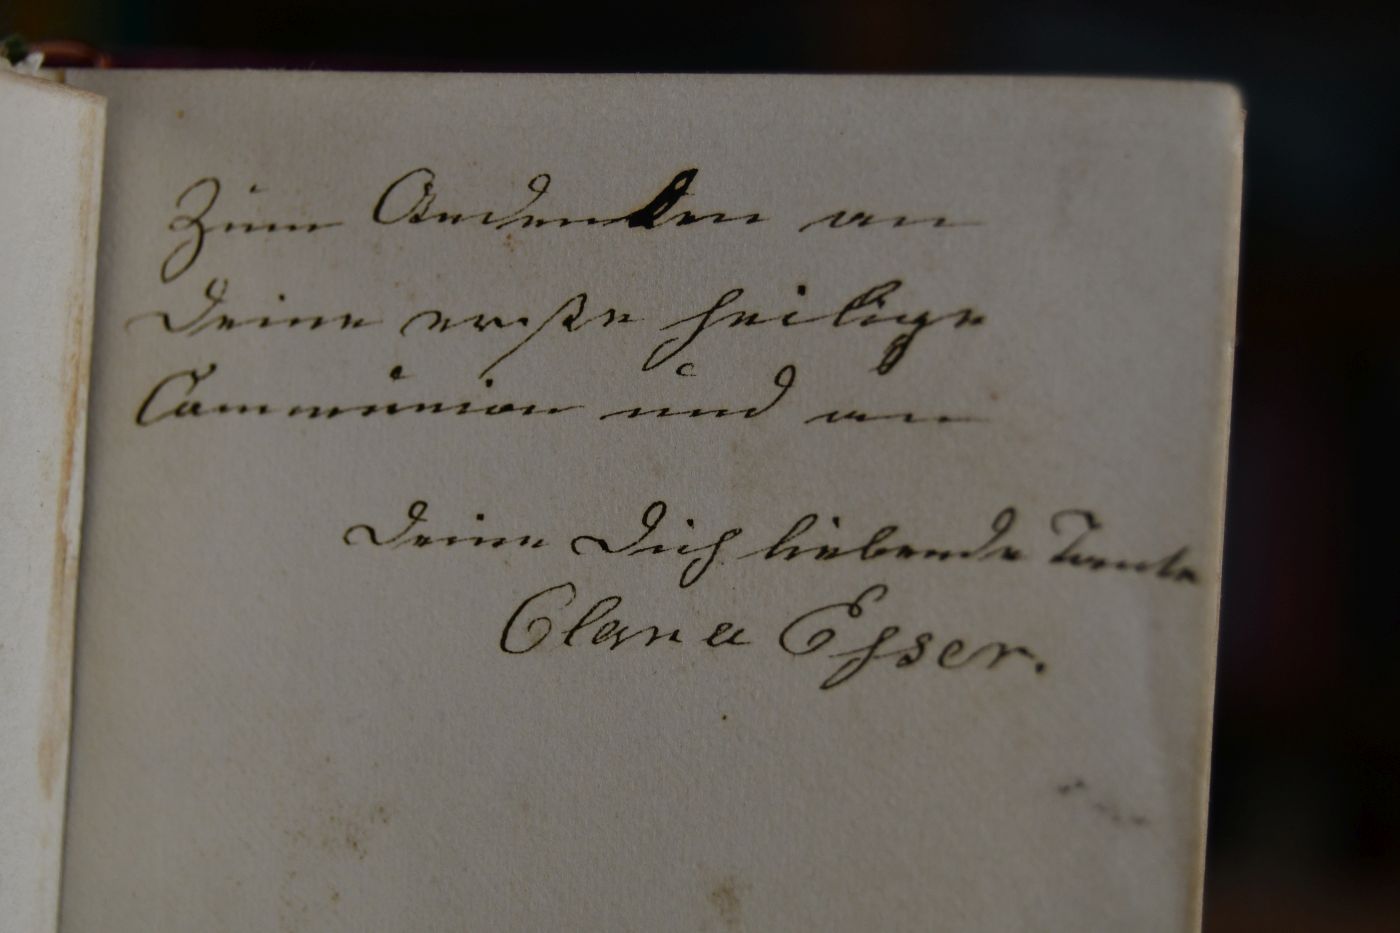 Zum Andenken an
Deine erste heilige
Communion und an
Deine Dich liebende Tante
Clara Esser.